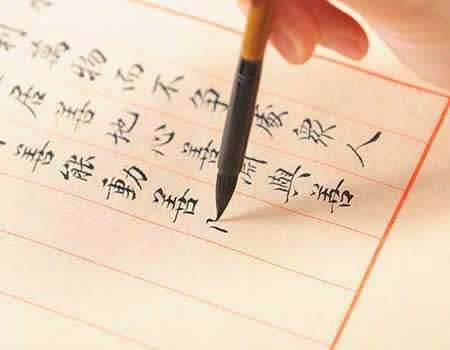 利萬物而不爭處衆人
居善地心善淵與善
善能動善